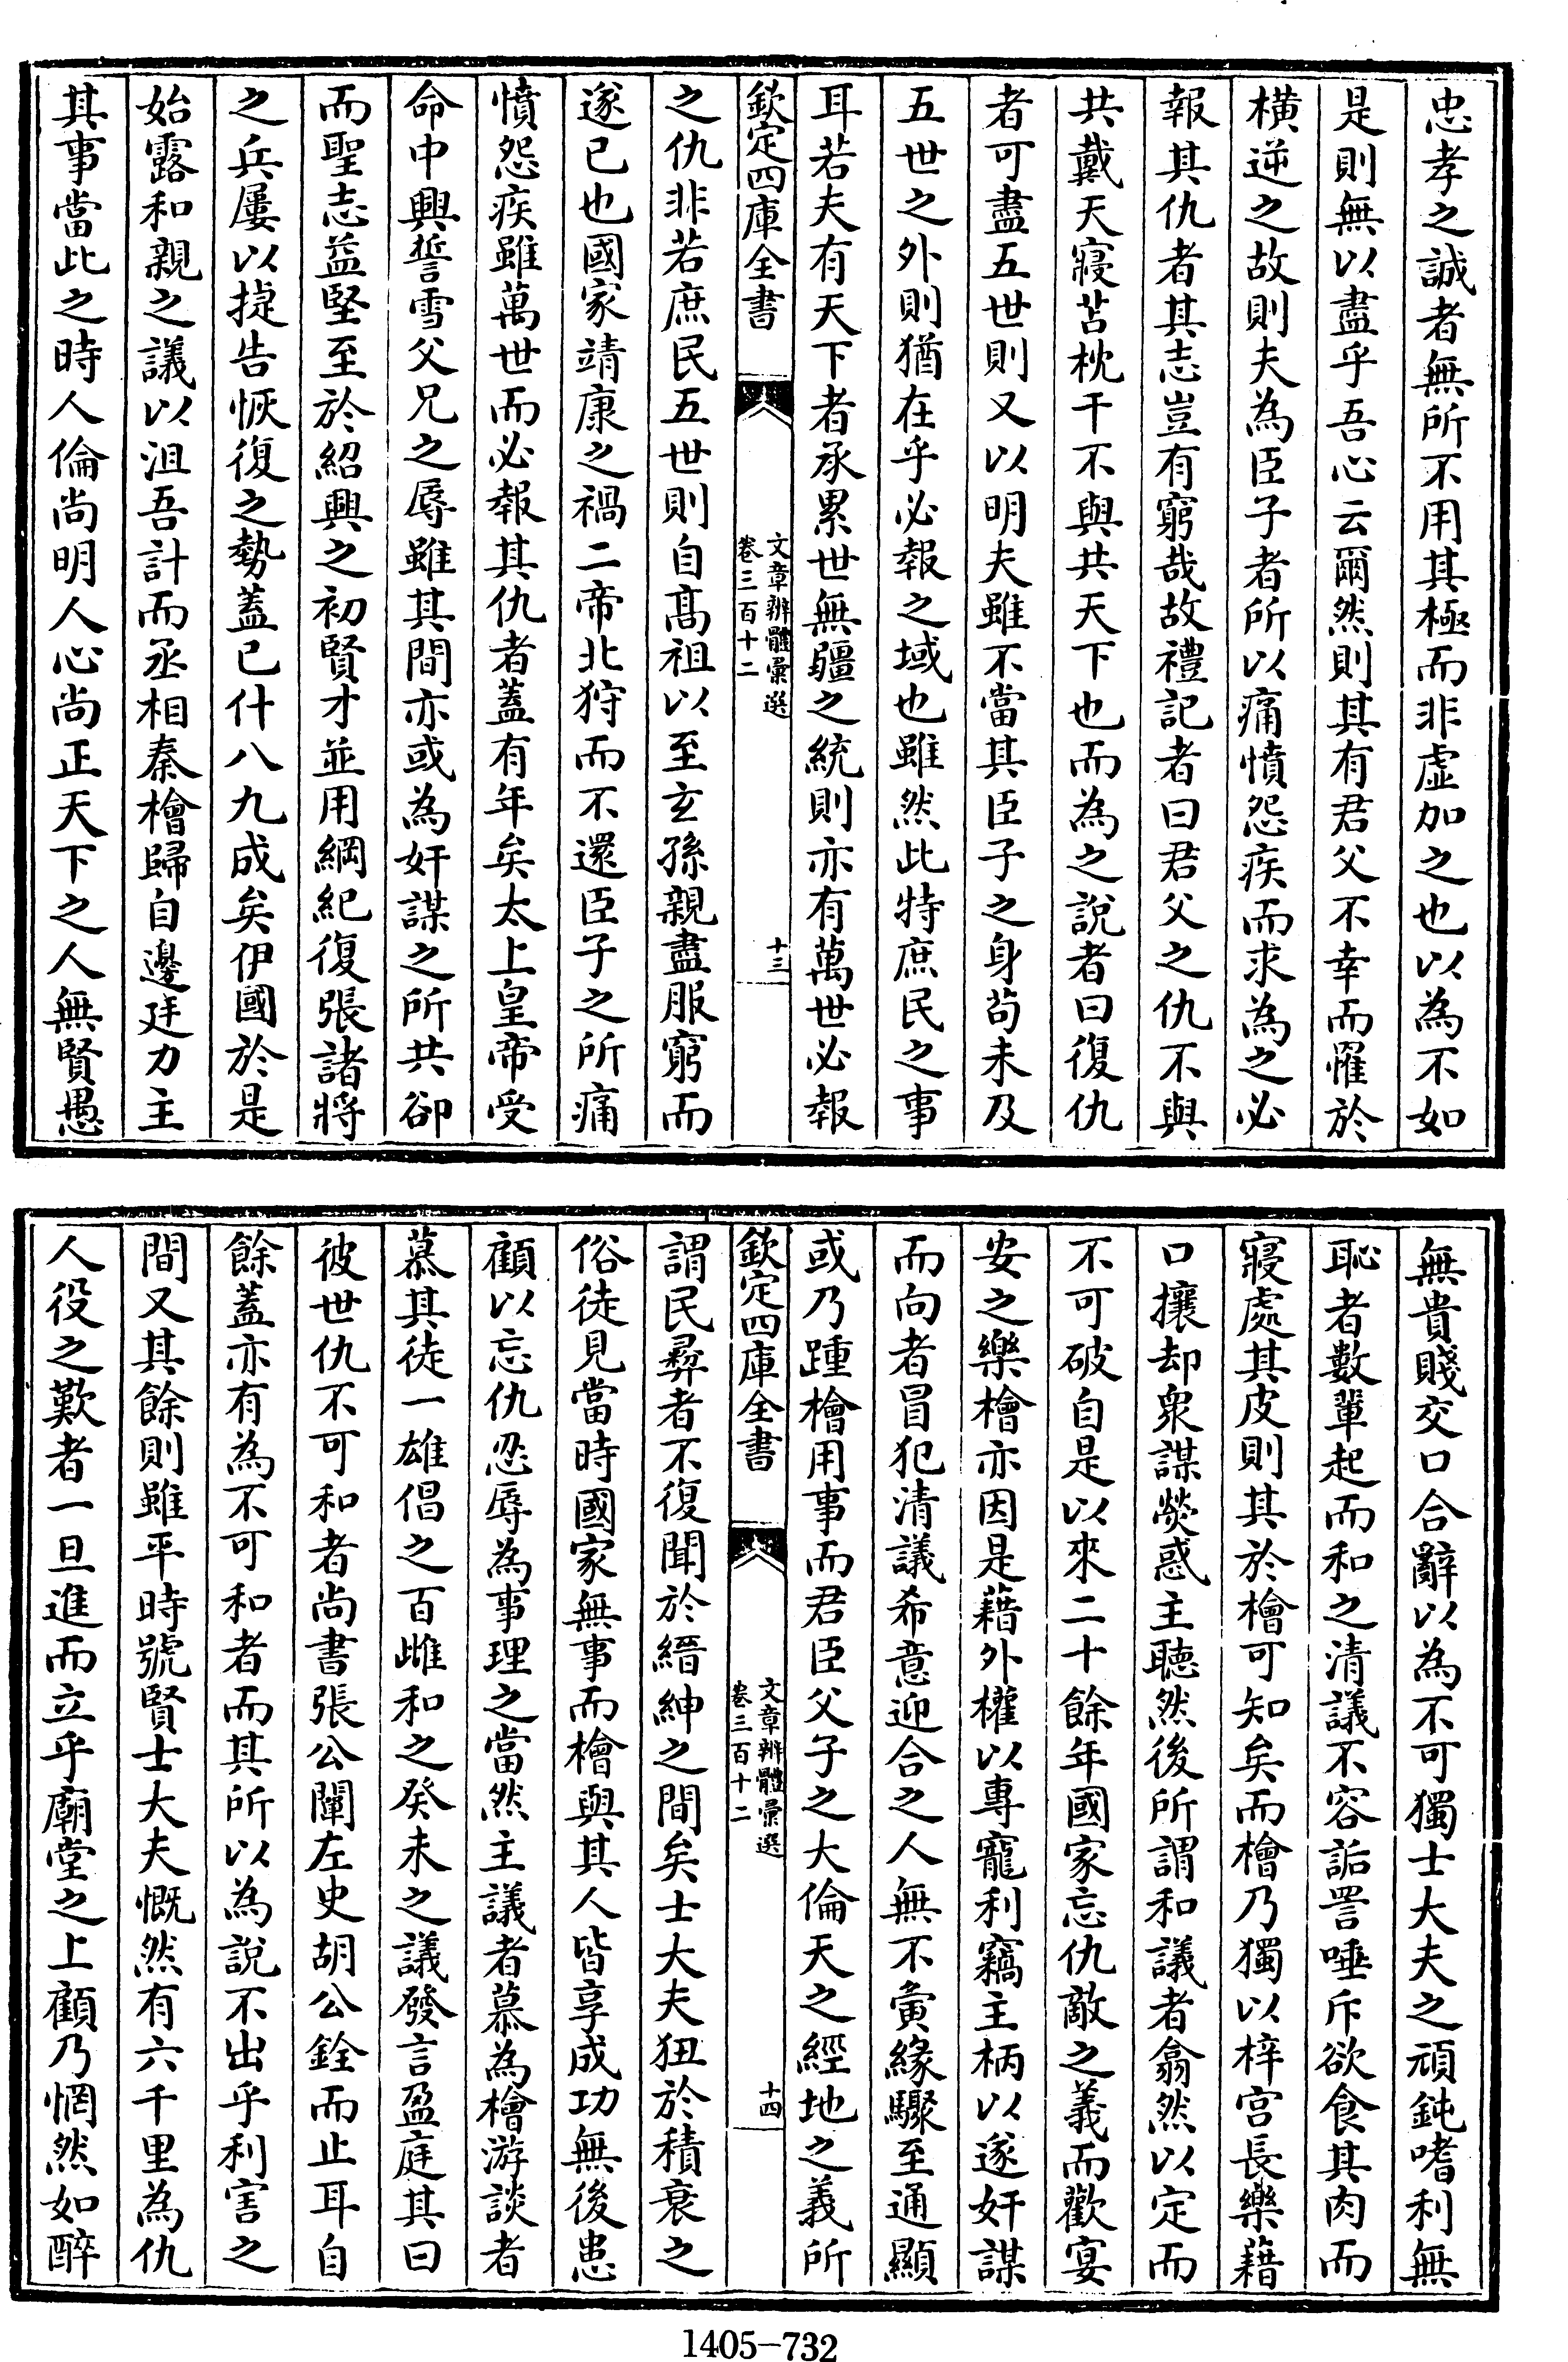 忠孝之誠者無所不用其極而非虛加之也以為不如
是則無以盡乎吾心云爾然則其有君父不幸而罹於
橫逆之故則夫為臣子者所以痛憤怨疾而求為之必
報其仇者其志豈有窮哉故禮記者曰君父之仇不與
共戴天寢苫枕干不與共天下也而為之說者曰復仇
者可盡五世則又以明夫雖不當其臣子之身苟未及
五世之外則猶在乎必報之域也雖然此特庶民之事
耳若夫有天下者承累世無疆之統則亦有萬世必報
欽定四庫全書
文章辨體彙選
卷三百十二
十三
之仇非若庶民五世則自髙祖以至玄孫親盡服窮而
遂已也國家靖康之禍二帝北狩而不還臣子之所痛
憤怨疾雖萬世而必報其仇者蓋有年矣太上皇帝受
命中興誓雪父兄之辱雖其間亦或為奸謀之所共卻
而聖志益堅至於紹興之初賢才並用綱紀復張諸將
之兵屢以捷告恢復之勢蓋已什八九成矣伊國於是
始露和親之議以沮吾計而丞相秦檜歸自邊廷力主
其事當此之時人倫尚明人心尚正天下之人無賢愚
無貴賤交口合辭以為不可獨士大夫之頑鈍嗜利無
恥者數輩起而和之清議不容詬詈唾斥欲食其肉而
寢處其皮則其於檜可知矣而檜乃獨以梓宫長樂藉
口攘却衆謀熒惑主聽然後所謂和議者翕然以定而
不可破自是以來二十餘年國家忘仇敵之義而歡宴
安之樂檜亦因是藉外權以專寵利竊主柄以遂奸謀
而向者冒犯清議希意迎合之人無不夤緣驟至通顯
或乃踵檜用事而君臣父子之大倫天之經地之義所
欽定四庫全書
文章辨體彙選
卷三百十二
十四
謂民彛者不復聞於縉紳之間矣士大夫狃於積衰之
俗徒見當時國家無事而檜與其人皆享成功無後患
顧以忘仇忍辱為事理之當然主議者慕為檜游談者
慕其徒一雄倡之百雌和之癸未之議發言盈庭其曰
彼世仇不可和者尚書張公闡左史胡公銓而止耳自
餘蓋亦有為不可和者而其所以為說不出乎利害之
間又其餘則雖平時號賢士大夫慨然有六千里為仇
人役之歎者一旦進而立乎廟堂之上顧乃惘然如醉
1405-732